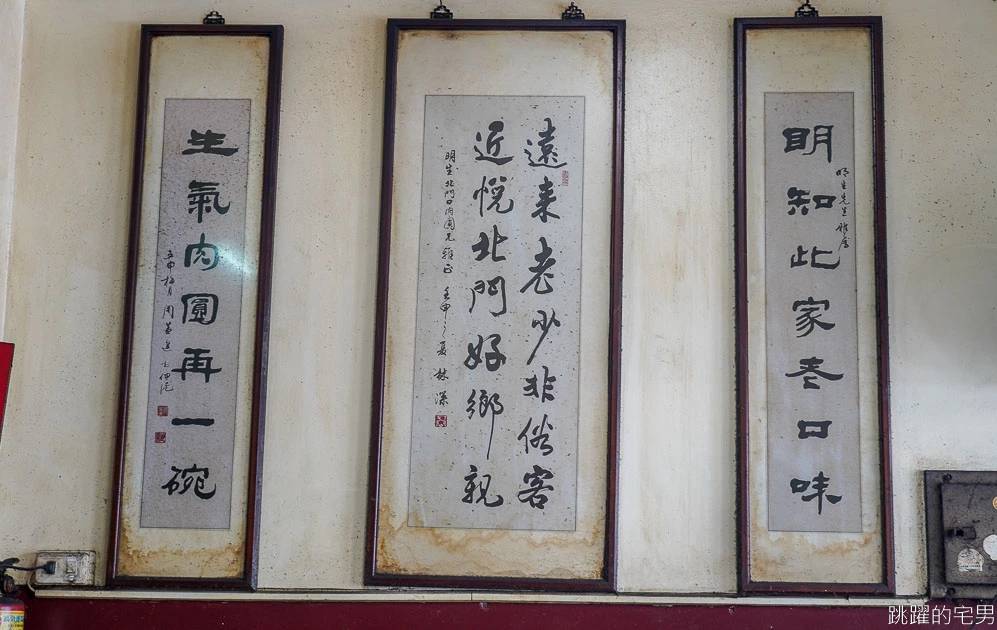 明知此家老口味
明生先生雅屬
遠来老少非俗客
近悅北門好鄉親
明生北門口肉圓兄雅正 壬申之夏 林
生氣肉圓再一碗
壬申梅月 周
跳躍的宅男